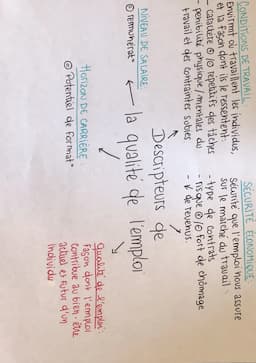 CONDITIONS DE TRAVAIL
Envirmt où travaillent les individus,
et la façon dont ils le ressentent
- caractère ⊕/⊖ répétitifs des tâches
- pénibilité physique/mentales du
travail et des contraintes subies
SÉCURITÉ ÉCONOMIQUE
Sécurité que l'emploi nous assure
sur le marché du travail
- type de contrats
- risque ⊕/⊖ fort de chômage
- de revenus.
NIVEAU DE SALAIRE
⊕ rémunérat°
Descripteurs de
la qualité de l'emploi
HORIZON DE CARRIÈRE
⊕ Potentiel de format°
Qualité de l'emploi:
Façon dont l'emploi
contribue au bien-être
actuel et futur d'un
individu